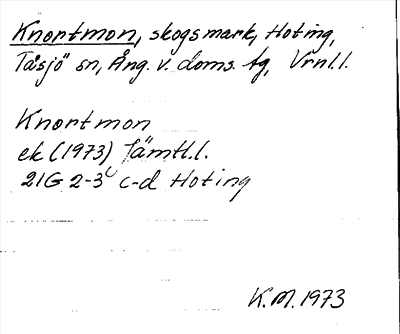 Knortmon, skogsmark, Hoting,
Tåsjö sn, Ång. v. doms. tg, Vrnl.l.
Knortmon
ek (1973) Jämtl.l.
21G 2-3 c-d Hoting
K.M. 1973